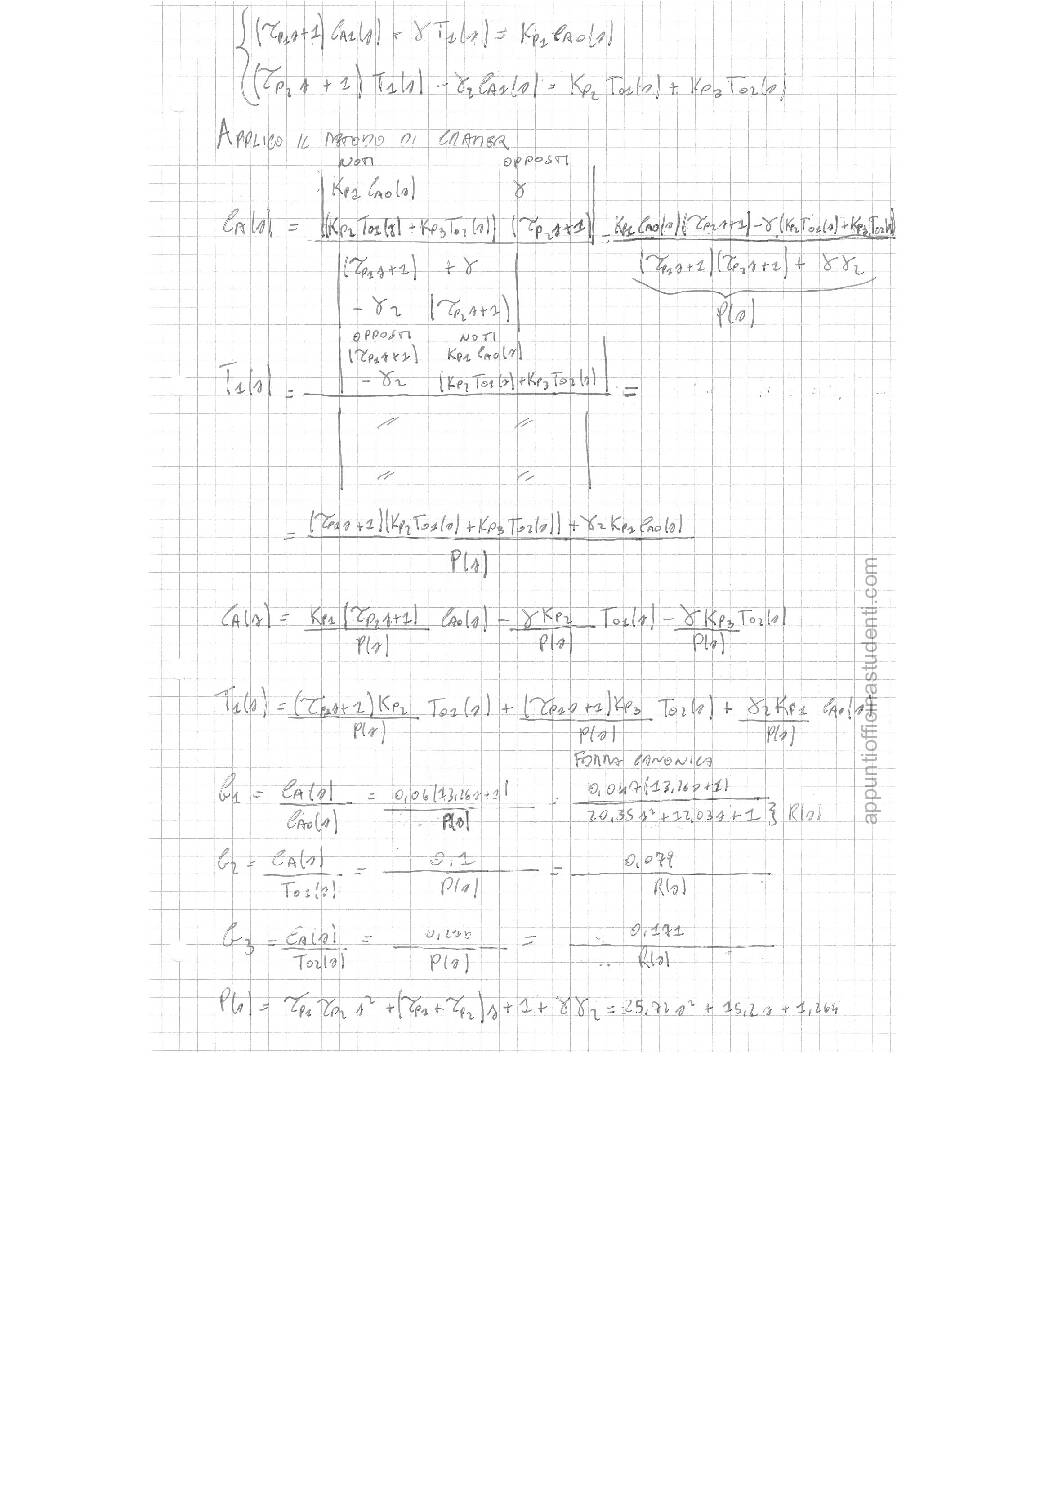 (τP1s+1) CA1(s) + γ T1(s) = KP1 CA0(s)
(τP2 s + 1) T1(s) - γ2 CA1(s) = KP2 T01(s) + KP3 T02(s)
APPLICO IL METODO DI CRAMER
NOTI OPPOSTI
KP1 CA0(s) γ
CA(s) = (KP2 T01(s) + KP3 T02(s)) (τP2 s+1) = KP1 CA0(s)(τP2s+1) - γ(KP2T01(s)+KP3T02(s))
(τP1s+1) +γ (τP1s+1)(τP2s+1) + γγ2
-γ2 (τP2s+1) P(s)
OPPOSTI NOTI
(τP1s+1) KP1 CA0(s)
T1(s) = -γ2 (KP2 T01(s)+KP3 T02(s)) =
// //
// //
= (τP1s+1)(KP2T01(s) + KP3T02(s)) + γ2 KP1 CA0(s)
P(s)
CA(s) = KP1(τP2s+1) CA0(s) - γ KP2 T01(s) - γ KP3 T02(s)
P(s) P(s) P(s)
T1(s) = (τP1s+1)KP2 T01(s) + (τP1s+1)KP3 T02(s) + γ2 KP1 CA0(s)
P(s) P(s) P(s)
FORMA CANONICA
G1 = CA(s) = 0,06(13,26s+1) = 0,047(13,26s+1)
CA0(s) P(s) 20,35s² + 12,03s + 1 } R(s)
G2 = CA(s) = 0,1 = 0,079
T01(s) P(s) R(s)
G3 = CA(s) = = 0,171
T02(s) P(s) R(s)
P(s) = τP1 τP2 s² + (τP1 + τP2)s + 1 + γγ2 = 25,72s² + 15,2s + 1,264
appuntiofficinastudenti.com